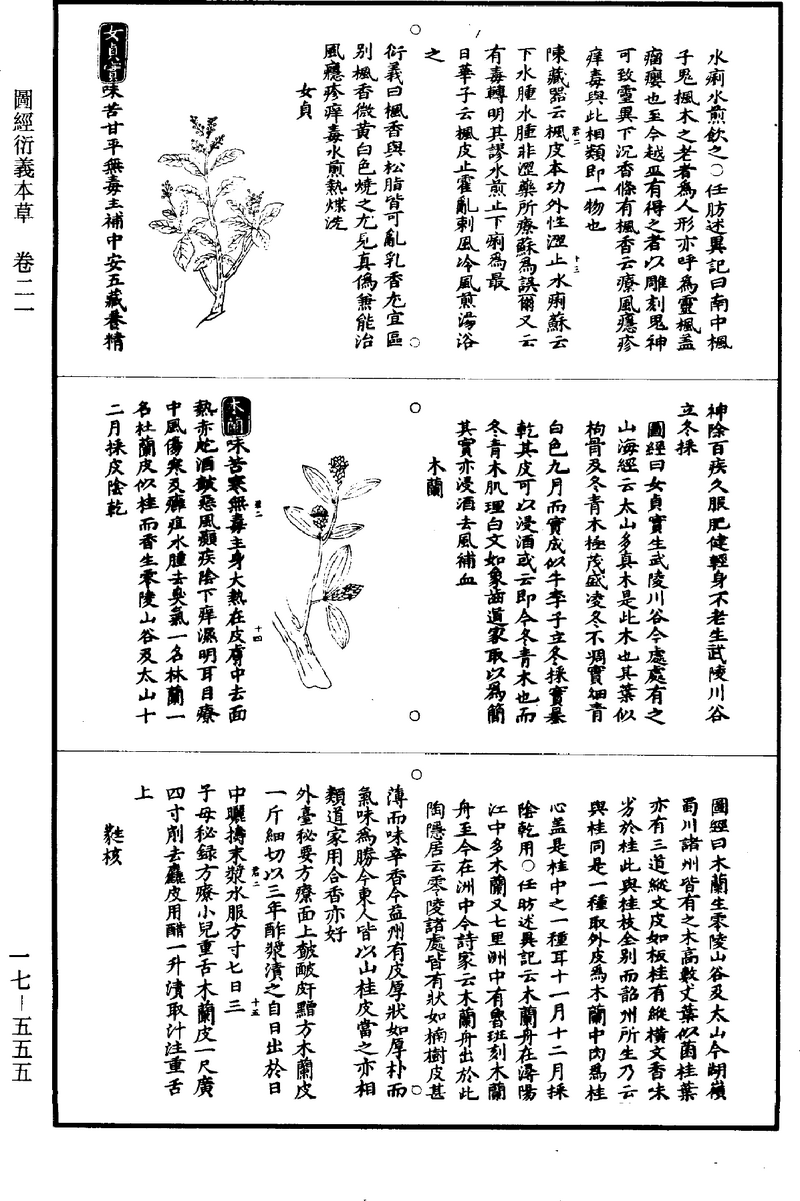 圖經衍義本草　卷二一
一七－五五五
水痢水煎飲之○任昉述異記曰南中楓
子鬼楓木之老者為人形亦呼為靈楓蓋
瘤癭也至今越巫有得之者以雕刻鬼神
可致靈異下沉香條有楓香云療風癮疹
痒毒與此相類即一物也
陳藏器云楓皮本功外性澀止水痢蘇云
下水腫水腫非澀藥所療蘇為誤爾又云
有毒轉明其謬水煎止下痢為最
日華子云楓皮止霍亂刺風冷風煎湯浴
之
衍義曰楓香與松脂皆可亂乳香尤宜區
別楓香微黃白色燒之尤見真偽兼能治
風癮疹痒毒水煎熱煠洗
女貞
女貞實味苦甘平無毒主補中安五藏養精
神除百疾久服肥健輕身不老生武陵川谷
立冬採
圖經曰女貞實生武陵川谷今處處有之
山海經云太山多真木是此木也其葉似
枸骨及冬青木極茂盛凌冬不凋實細青
白色九月而實成似牛李子立冬採實暴
乾其皮可以浸酒或云即今冬青木也而
冬青木肌理白文如象齒道家取以為簡
其實亦浸酒去風補血
木蘭
木蘭味苦寒無毒主身大熱在皮膚中去面
熱赤皰酒皶惡風癲疾陰下痒濕明耳目療
中風傷寒及癰疽水腫去臭氣一名林蘭一
名杜蘭皮似桂而香生零陵山谷及太山十
二月採皮陰乾
圖經曰木蘭生零陵山谷及太山今湖嶺
蜀川諸州皆有之木高數丈葉似菌桂葉
亦有三道縱文皮如板桂有縱橫文香味
劣於桂此與桂枝全別而韶州所生乃云
與桂同是一種取外皮為木蘭中肉為桂
心蓋是桂中之一種耳十一月十二月採
陰乾用○任昉述異記云木蘭舟在潯陽
江中多木蘭又七里洲中有魯班刻木蘭
舟至今在洲中今詩家云木蘭舟出於此
陶隱居云零陵諸處皆有狀如楠樹皮甚
薄而味辛香今益州有皮厚狀如厚朴而
氣味為勝今東人皆以山桂皮當之亦相
類道家用合香亦好
外臺秘要方療面上皶皰皯䵟方木蘭皮
一斤細切以三年酢漿漬之自日出於日
中曬擣末漿水服方寸七日三
子母秘録方療小兒重舌木蘭皮一尺廣
四寸削去麤皮用醋一升漬取汁注重舌
上
蕤核